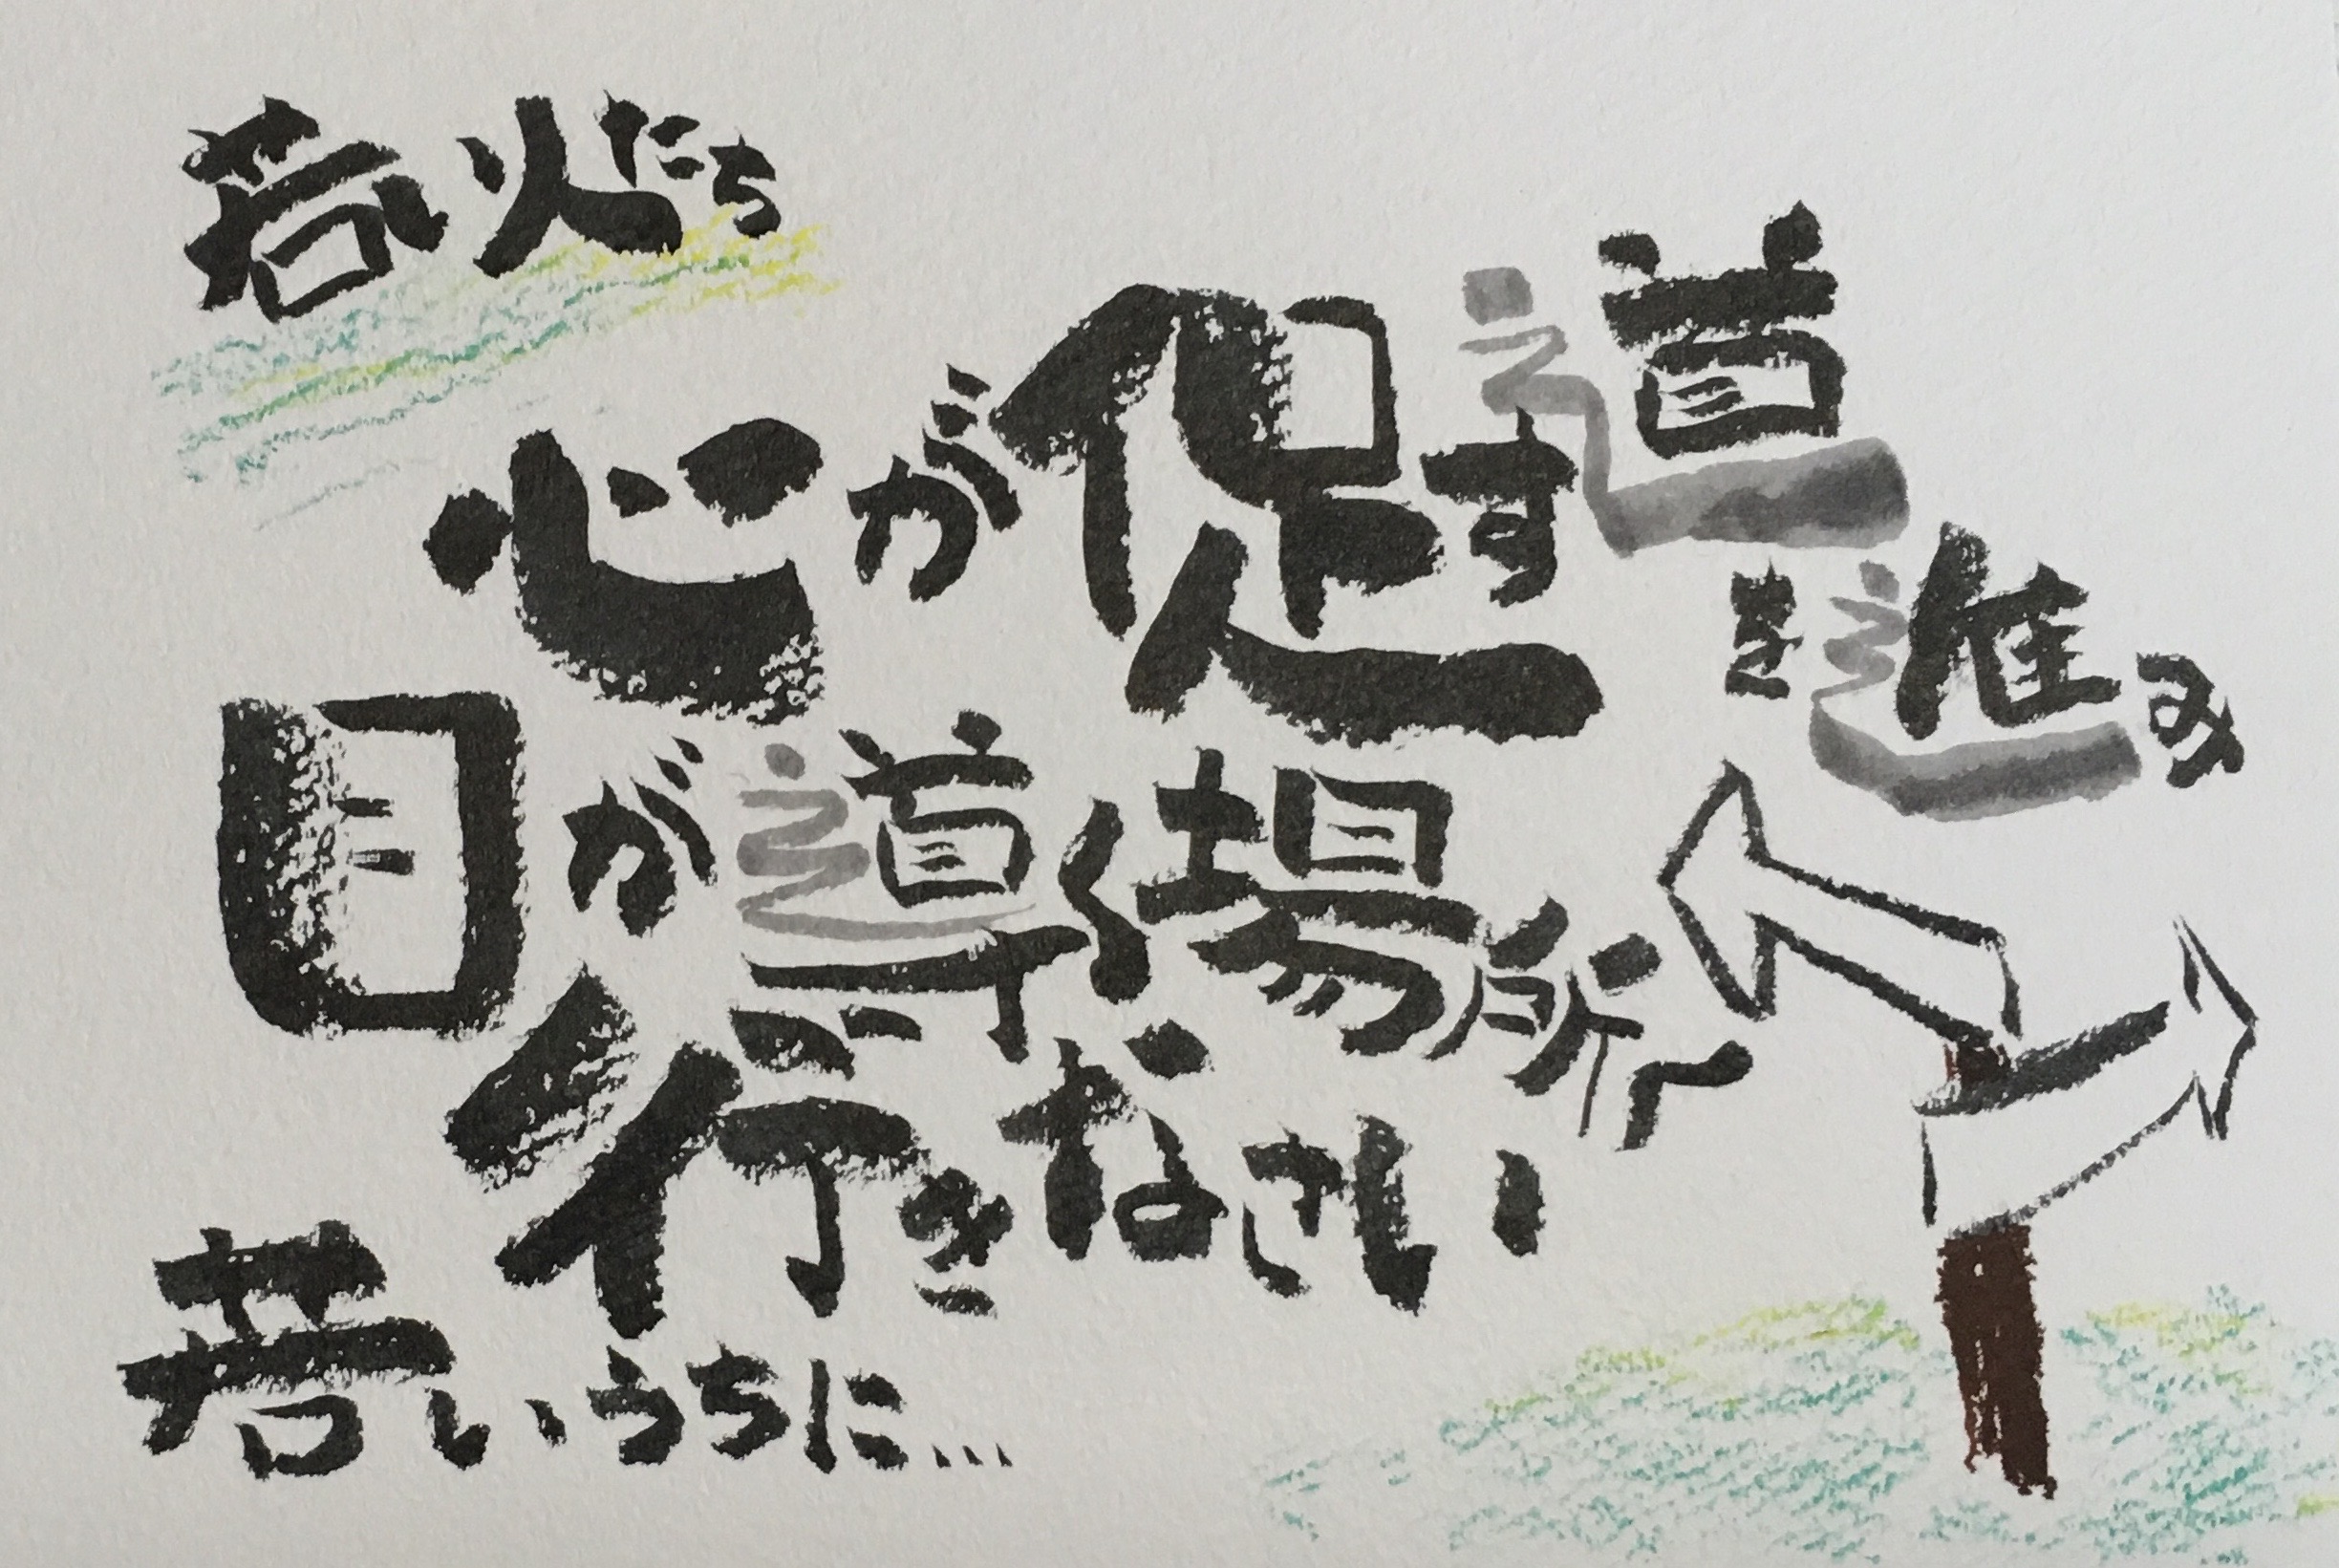 若い人たち
心が促す道
を進み
目が導く場所へ
行きなさい
若いうちに...